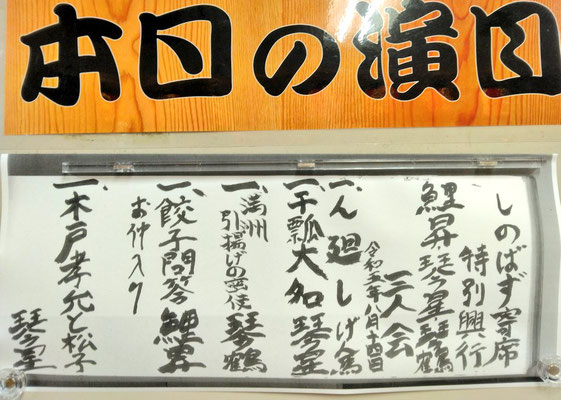 本日の演目
しのばず寄席
特別興行
鯉昇琴星琴鶴
三人会
令和五年八月十四日
一、ん廻し げ鳥
一、干瓢大和 琴星
一、満洲
引揚げの密使 琴鶴
一、餃子問答 鯉昇
お仲入り
一、木戸孝允と松子
琴星